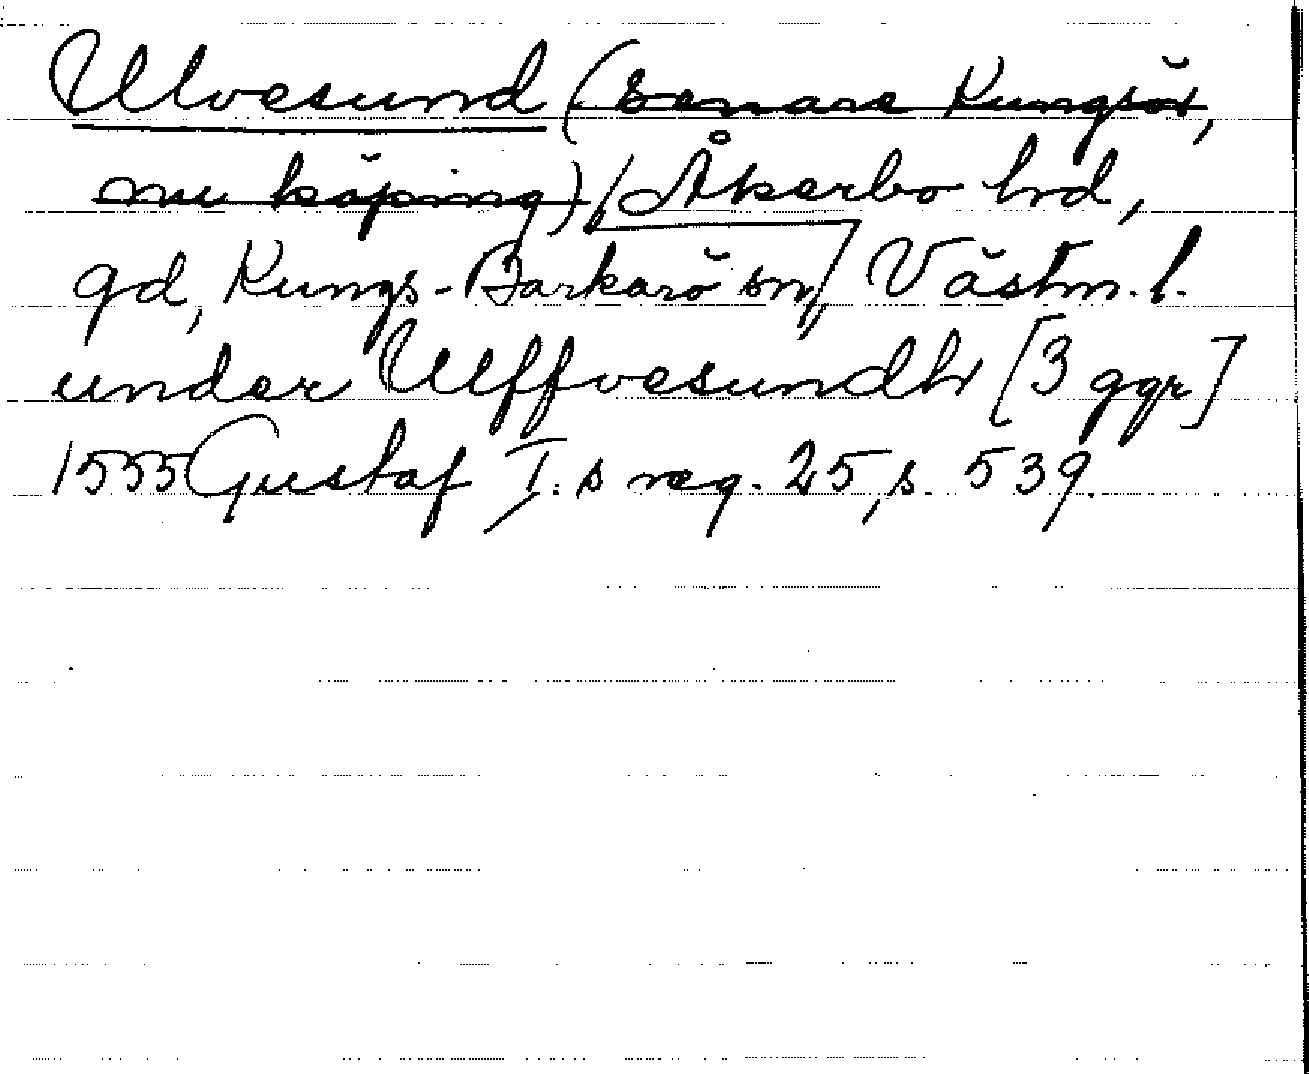 Ulvesund (senare Kungsör,
nu köping) Åkerbo hd,
gd, Kungs-Barkarö sn, Västm. l.
under Ulffvesundh [3 ggr]
1555 Gustaf I:s reg. 25, s. 539.